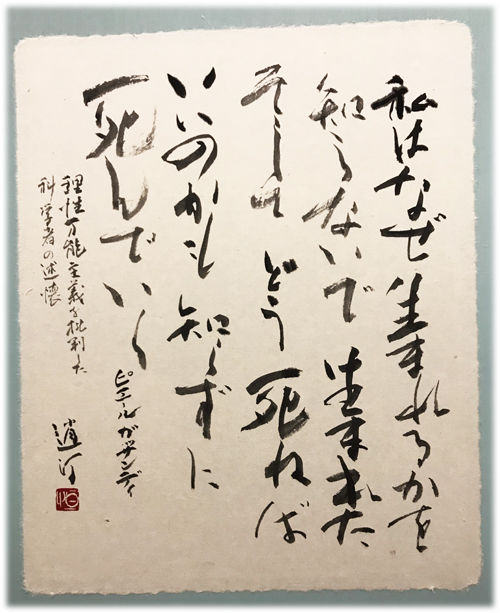 私はなぜ生まれるかを
知らないで生まれた
そして どう死ねば
いいのかも知らずに
死んでいく
ピエールガッサンディ
理性万能主義を批判した
科学者の述懐